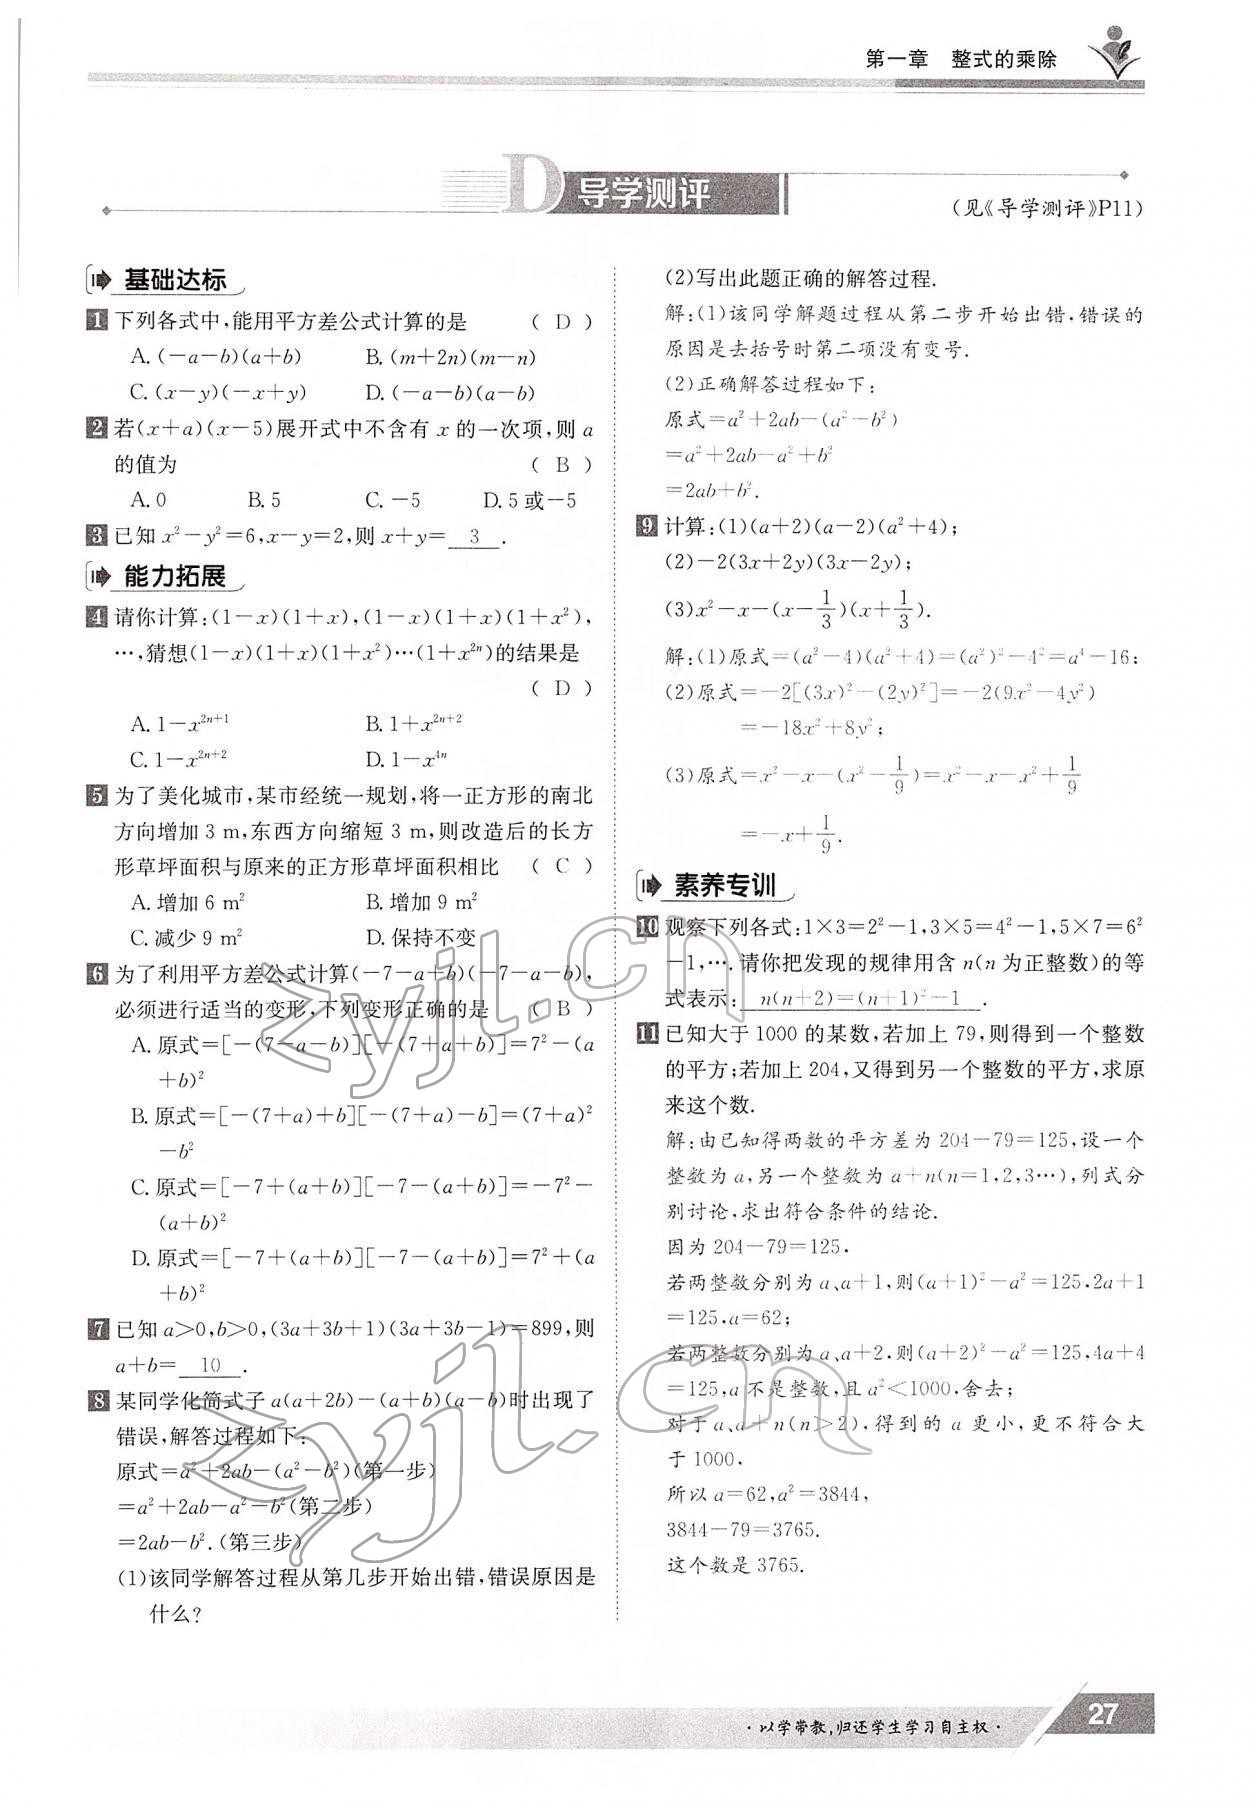 第一章 整式的乘除
D 导学测评
(见《导学测评》P11)
基础达标
1 下列各式中,能用平方差公式计算的是 ( D )
A. (－a－b)(a＋b) B. (m＋2n)(m－n)
C. (x－y)(－x＋y) D. (－a－b)(a－b)
2 若(x＋a)(x－5)展开式中不含有 x 的一次项,则 a
的值为 ( B )
A. 0 B. 5 C. －5 D. 5 或－5
3 已知 x²－y²＝6,x－y＝2,则 x＋y＝ 3 .
能力拓展
4 请你计算:(1－x)(1＋x),(1－x)(1＋x)(1＋x²),
…,猜想(1－x)(1＋x)(1＋x²)…(1＋x²ⁿ)的结果是
( D )
A. 1－x²ⁿ⁺¹ B. 1＋x²ⁿ⁺²
C. 1－x²ⁿ⁺² D. 1－x⁴ⁿ
5 为了美化城市,某市经统一规划,将一正方形的南北
方向增加 3 m,东西方向缩短 3 m,则改造后的长方
形草坪面积与原来的正方形草坪面积相比 ( C )
A. 增加 6 m² B. 增加 9 m²
C. 减少 9 m² D. 保持不变
6 为了利用平方差公式计算(－7－a＋b)(－7－a－b),
必须进行适当的变形,下列变形正确的是 ( B )
A. 原式＝[－(7－a－b)][－(7＋a＋b)]＝7²－(a
＋b)²
B. 原式＝[－(7＋a)＋b][－(7＋a)－b]＝(7＋a)²
－b²
C. 原式＝[－7＋(a＋b)][－7－(a＋b)]＝－7²－
(a＋b)²
D. 原式＝[－7＋(a＋b)][－7－(a＋b)]＝7²＋(a
＋b)²
7 已知 a＞0,b＞0,(3a＋3b＋1)(3a＋3b－1)＝899,则
a＋b＝ 10 .
8 某同学化简式子 a(a＋2b)－(a＋b)(a－b)时出现了
错误,解答过程如下:
原式＝a²＋2ab－(a²－b²)(第一步)
＝a²＋2ab－a²－b²(第二步)
＝2ab－b².(第三步)
(1)该同学解答过程从第几步开始出错,错误原因是
什么?
(2)写出此题正确的解答过程.
解:(1)该同学解题过程从第二步开始出错,错误的
原因是去括号时第二项没有变号.
(2)正确解答过程如下:
原式＝a²＋2ab－(a²－b²)
＝a²＋2ab－a²＋b²
＝2ab＋b².
9 计算:(1)(a＋2)(a－2)(a²＋4);
(2)－2(3x＋2y)(3x－2y);
(3)x²－x－(x－1/3)(x＋1/3).
解:(1)原式＝(a²－4)(a²＋4)＝(a²)²－4²＝a⁴－16;
(2)原式＝－2[(3x)²－(2y)²]＝－2(9x²－4y²)
＝－18x²＋8y²;
(3)原式＝x²－x－(x²－1/9)＝x²－x－x²＋1/9
＝－x＋1/9.
素养专训
10 观察下列各式:1×3＝2²－1,3×5＝4²－1,5×7＝6²
－1,…. 请你把发现的规律用含 n(n 为正整数)的等
式表示: n(n＋2)＝(n＋1)²－1 .
11 已知大于 1000 的某数,若加上 79,则得到一个整数
的平方;若加上 204,又得到另一个整数的平方,求原
来这个数.
解:由已知得两数的平方差为 204－79＝125,设一个
整数为 a,另一个整数为 a＋n(n＝1,2,3…),列式分
别讨论,求出符合条件的结论.
因为 204－79＝125.
若两整数分别为 a、a＋1,则(a＋1)²－a²＝125.2a＋1
＝125.a＝62;
若两整数分别为 a、a＋2.则(a＋2)²－a²＝125,4a＋4
＝125,a 不是整数,且 a²＜1000.舍去;
对于 a、a＋n(n＞2),得到的 a 更小,更不符合大
于 1000.
所以 a＝62,a²＝3844,
3844－79＝3765.
这个数是 3765.
zyjl.cn
zyjl.cn
·以学带教,归还学生学习自主权·
27